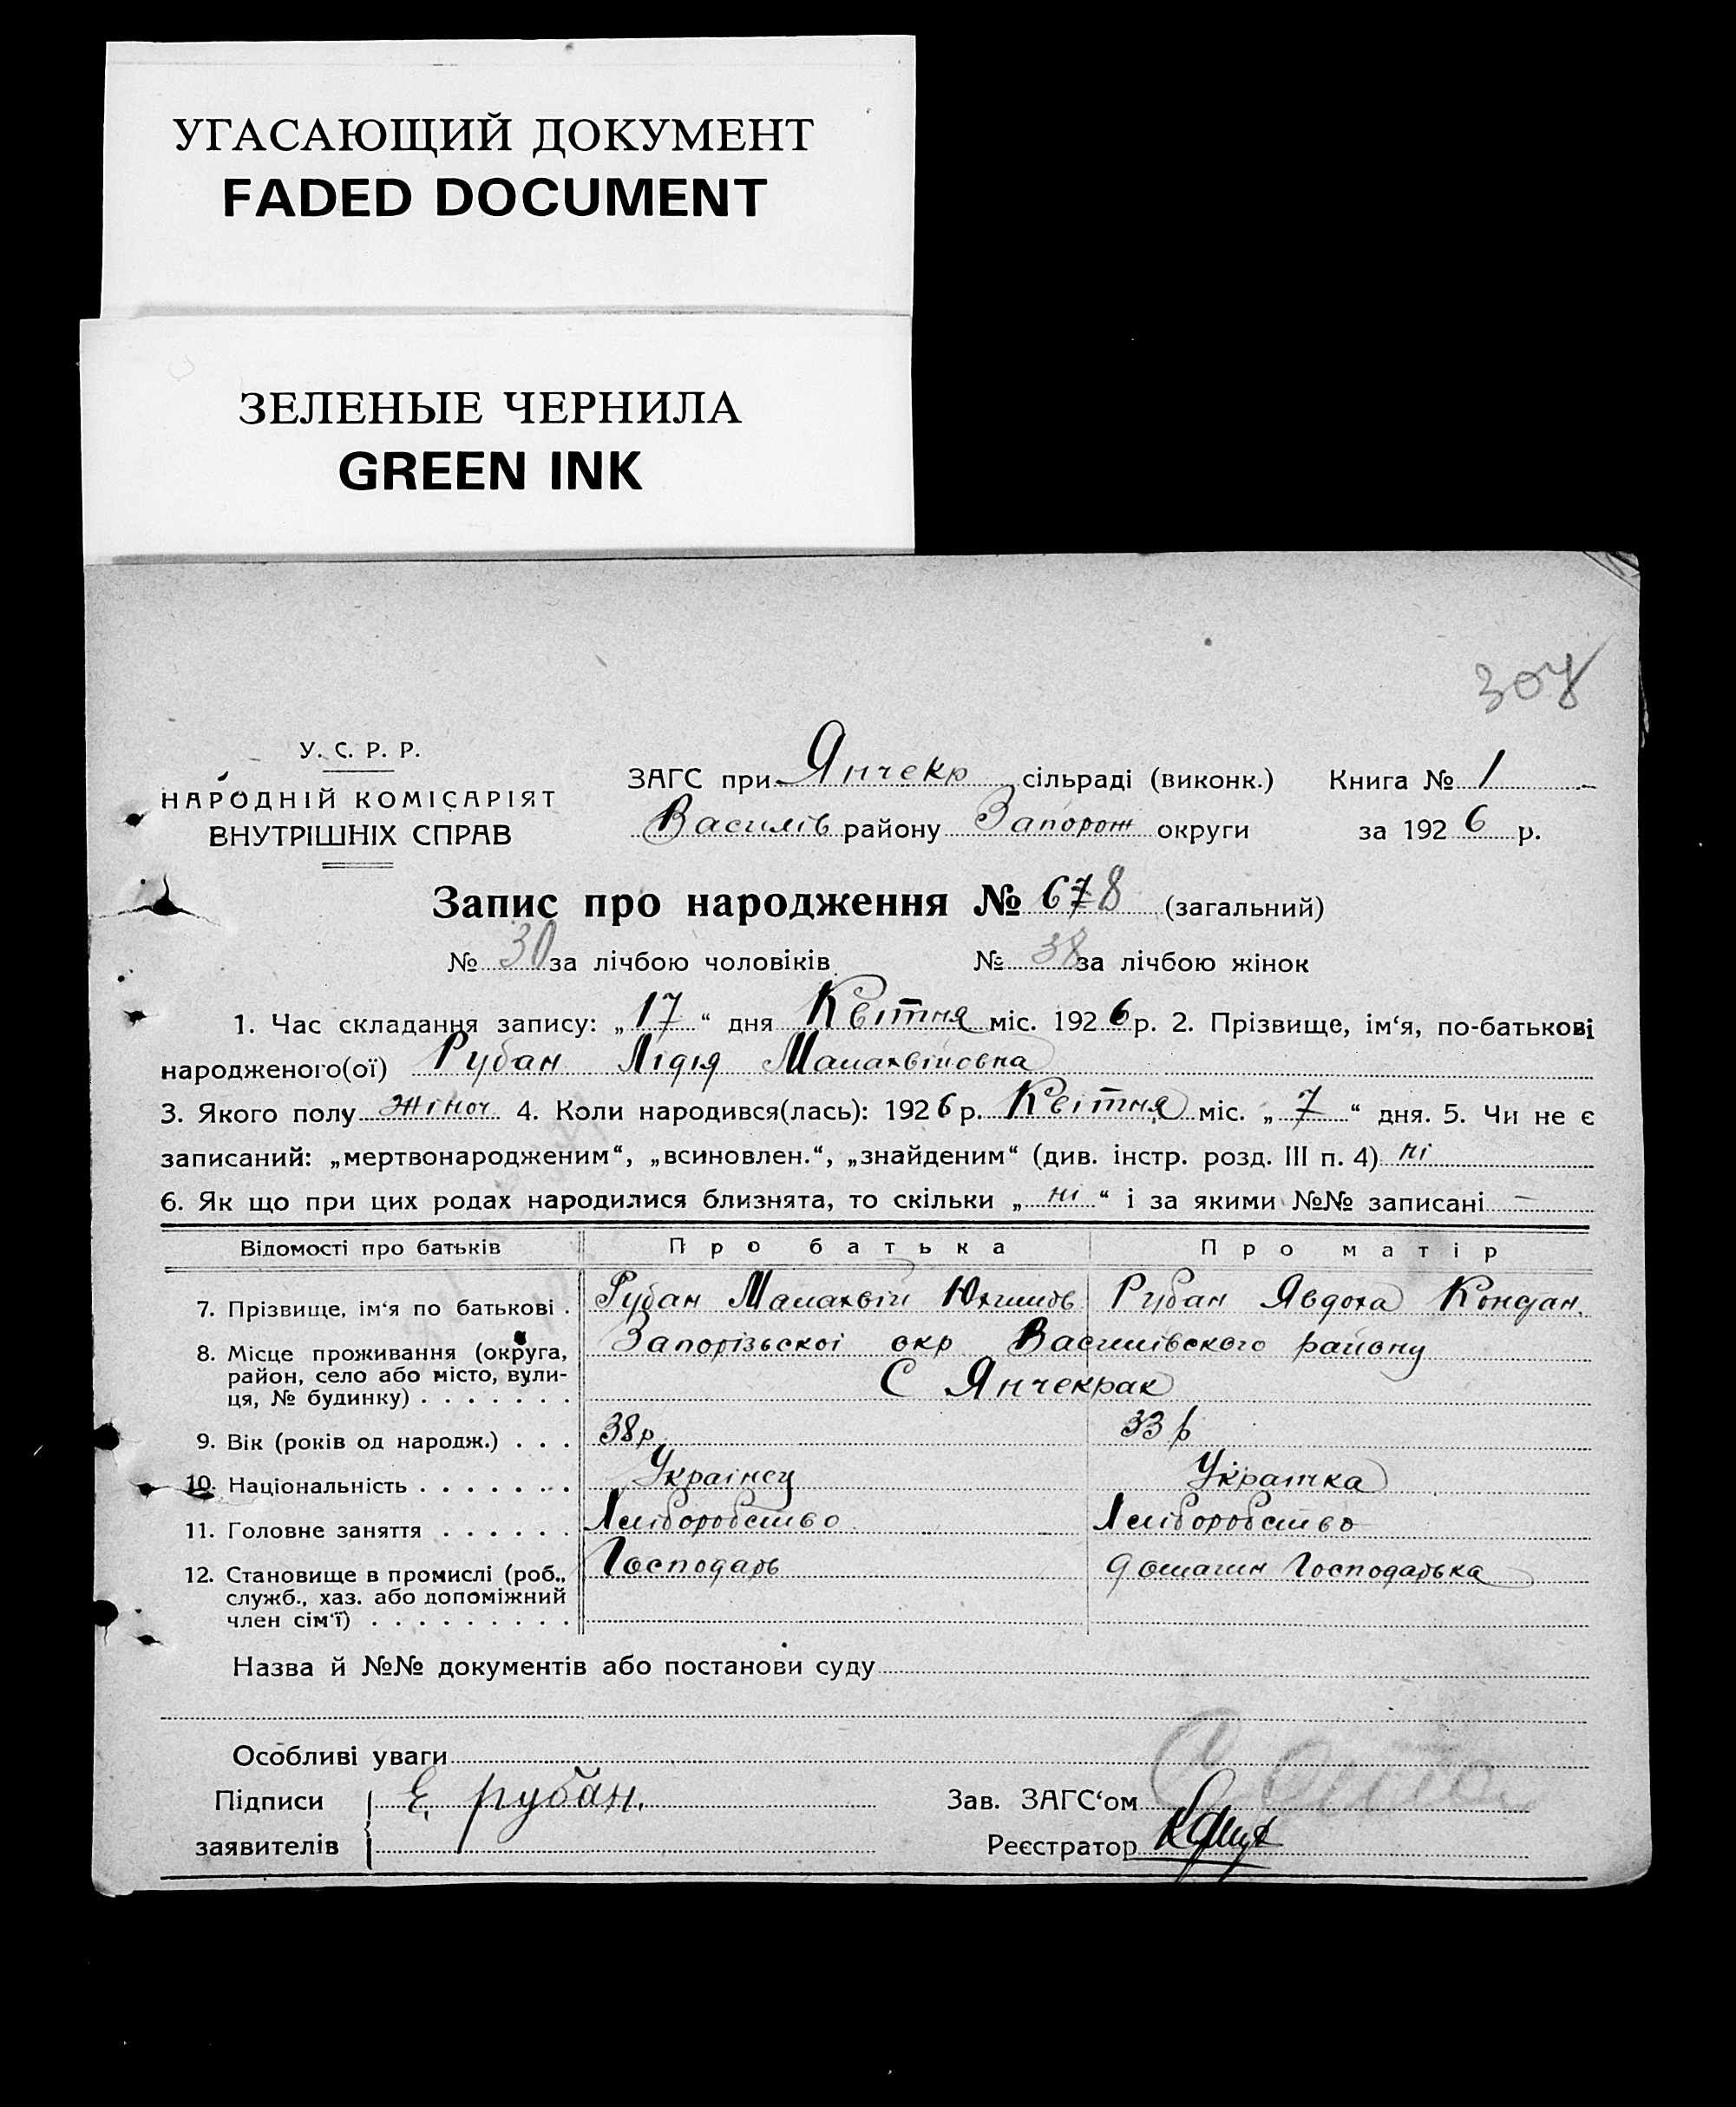 УГАСАЮЩИЙ ДОКУМЕНТ
FADED DOCUMENT
ЗЕЛЕНЫЕ ЧЕРНИЛА
GREEN INK
307
У. С. Р. Р.
НАРОДНІЙ КОМІСАРІЯТ
ВНУТРІШНІХ СПРАВ
ЗАГС при Янчекр сільраді (виконк.) Книга № 1
Василів району Запорож округи за 1926 р.
Запис про народження № 678 (загальний)
№ 30 за лічбою чоловіків № 38 за лічбою жінок
1. Час складання запису: „17“ дня Квітня міс. 1926 р. 2. Прізвище, ім‘я, по-батькові
народженого(ої) Рубан Лідія Малахвійовна
3. Якого полу жіноч 4. Коли народився(лась): 1926 р. Квітня міс. „7“ дня. 5. Чи не є
записаний: „мертвонародженим“, „всиновлен.“, „знайденим“ (див. інстр. розд. III п. 4) ні
6. Як що при цих родах народилися близнята, то скільки „ні“ і за якими №№ записані —
Відомості про батьків Про батька Про матір
7. Прізвище, ім‘я по батькові . Рубан Малахвій Юхимов Рубан Явдоха Кондан.
8. Місце проживання (округа, Запорізьскої окр Василівского району
район, село або місто, вули-
ця, № будинку) . . . . . . . С Янчекрак
9. Вік (років од народж.) . . . 38 р 33 р
10. Національність . . . . . . . Українец Українка
11. Головне заняття . . . . . . Хліборобство Хліборобство
12. Становище в промислі (роб., Господарь домашн Господарька
служб., хаз. або допоміжний
член сім‘ї) . . . . . . . . .
Назва й №№ документів або постанови суду
Особливі уваги
Підписи Е. рубан. Зав. ЗАГС‘ом
заявителів Реєстратор